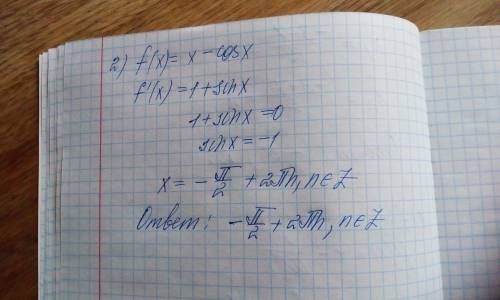 2) f(x) = x - cosx
f'(x) = 1 + sinx
1 + sinx = 0
sinx = -1
x = - π/2 + 2πn, n ∈ Z
Ответ: - π/2 + 2πn, n ∈ Z